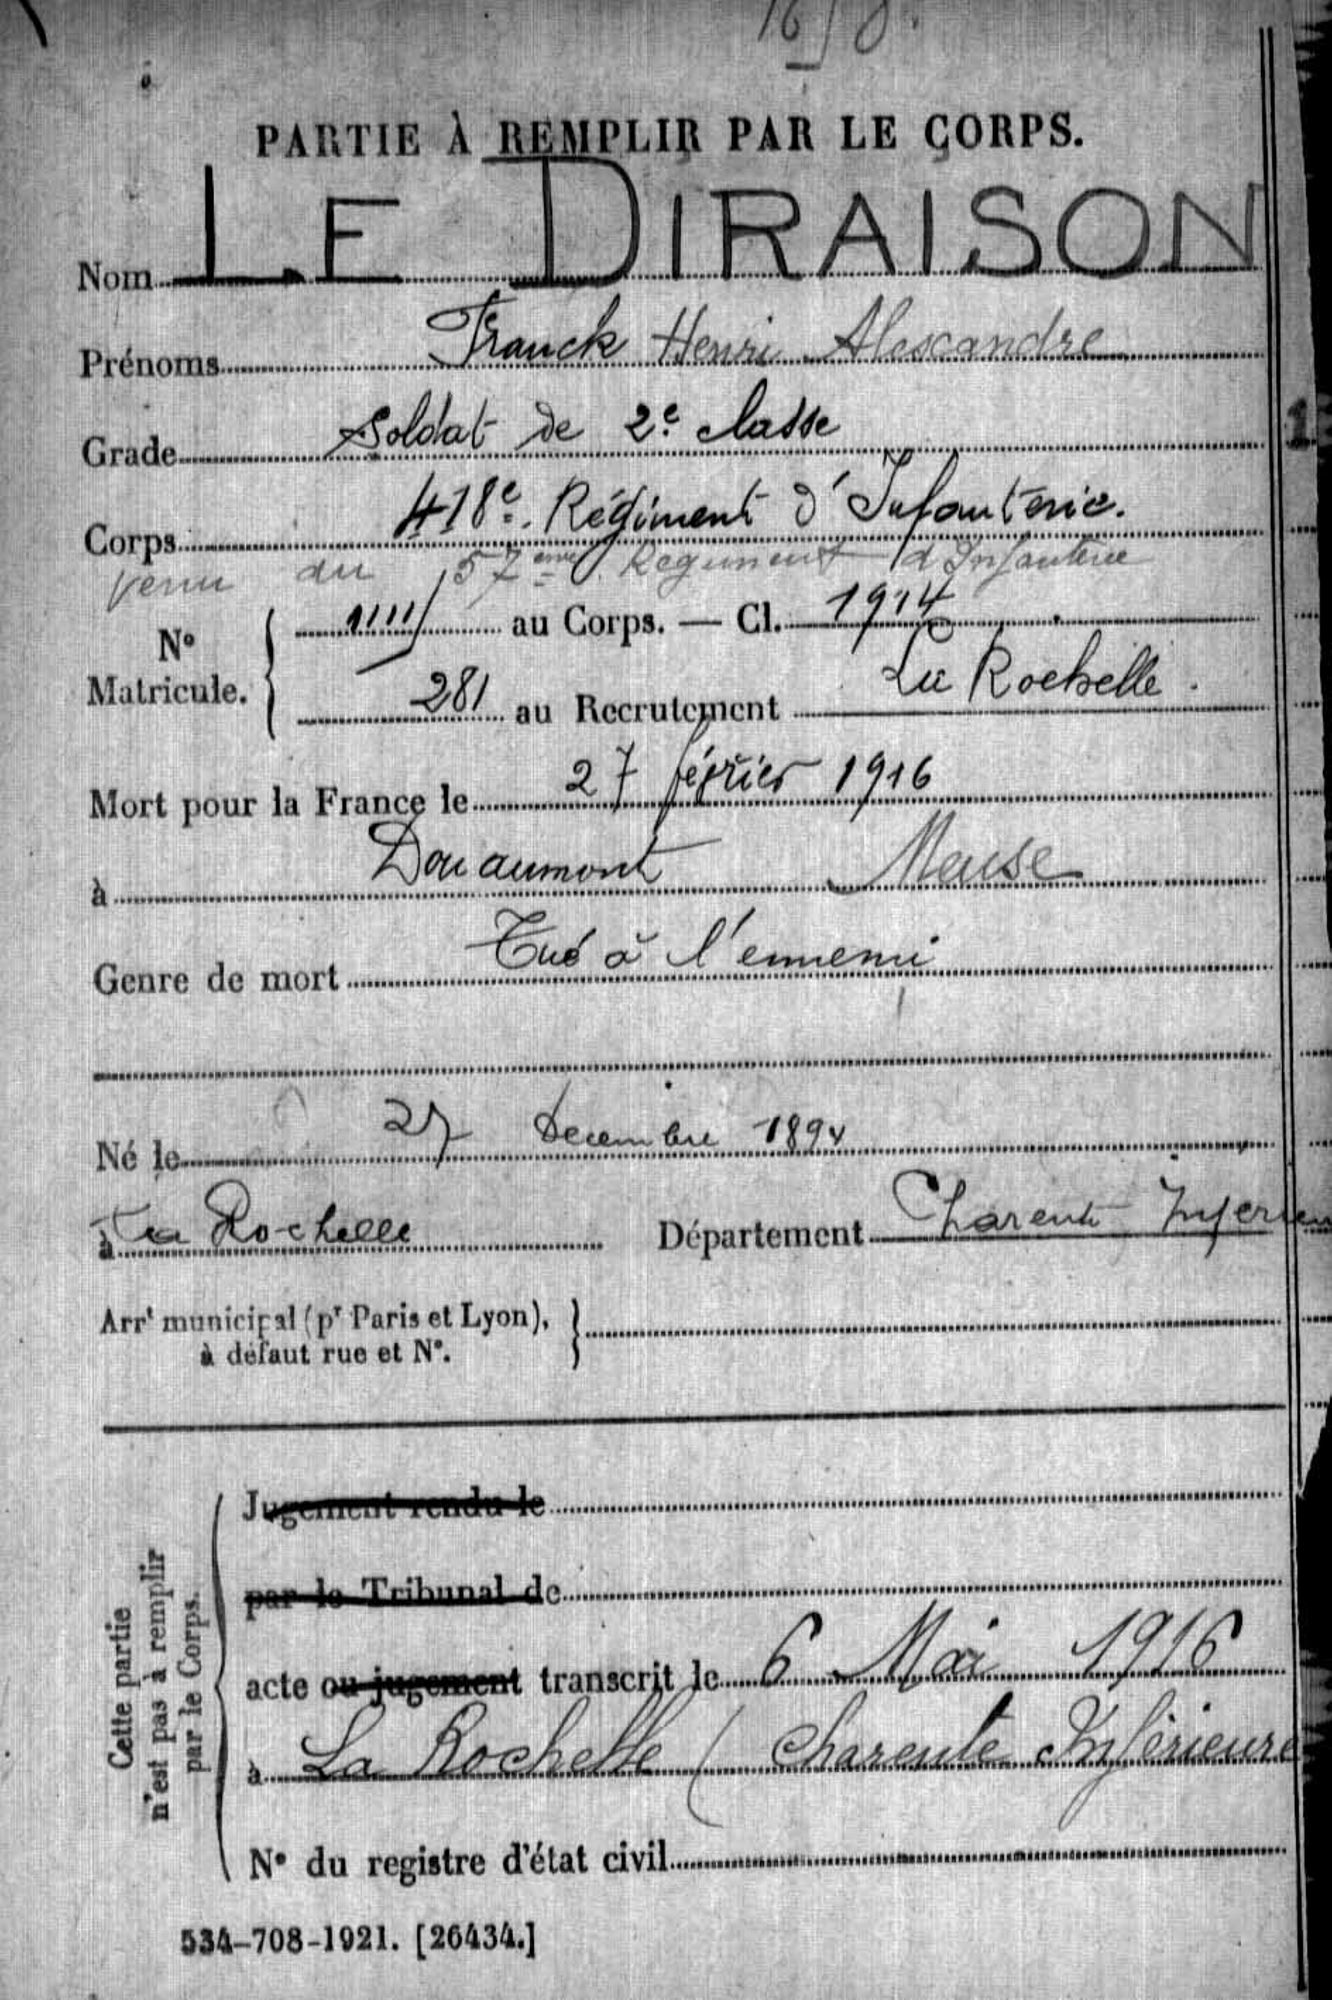 PARTIE À REMPLIR PAR LE CORPS.
Nom LE DIRAISON
Prénoms Franck Henri Alexandre
Grade Soldat de 2e classe
Corps 418e Régiment d'Infanterie.
Venu du 57ème Régiment d'Infanterie
No Matricule. 1111 au Corps. — Cl. 1914
281 au Recrutement La Rochelle.
Mort pour la France le 27 février 1916
à Douaumont Meuse
Genre de mort Tué à l'ennemi
Né le 27 Decembre 1894
à La Rochelle Département Charente Inferieu
Arrt municipal (pr Paris et Lyon),
à défaut rue et No.
Cette partie
n'est pas à remplir
par le Corps.
Jugement rendu le
par le Tribunal de
acte ou jugement transcrit le 6 Mai 1916
à La Rochelle (Charente Inférieure
No du registre d'état civil
534-708-1921. [26434.]